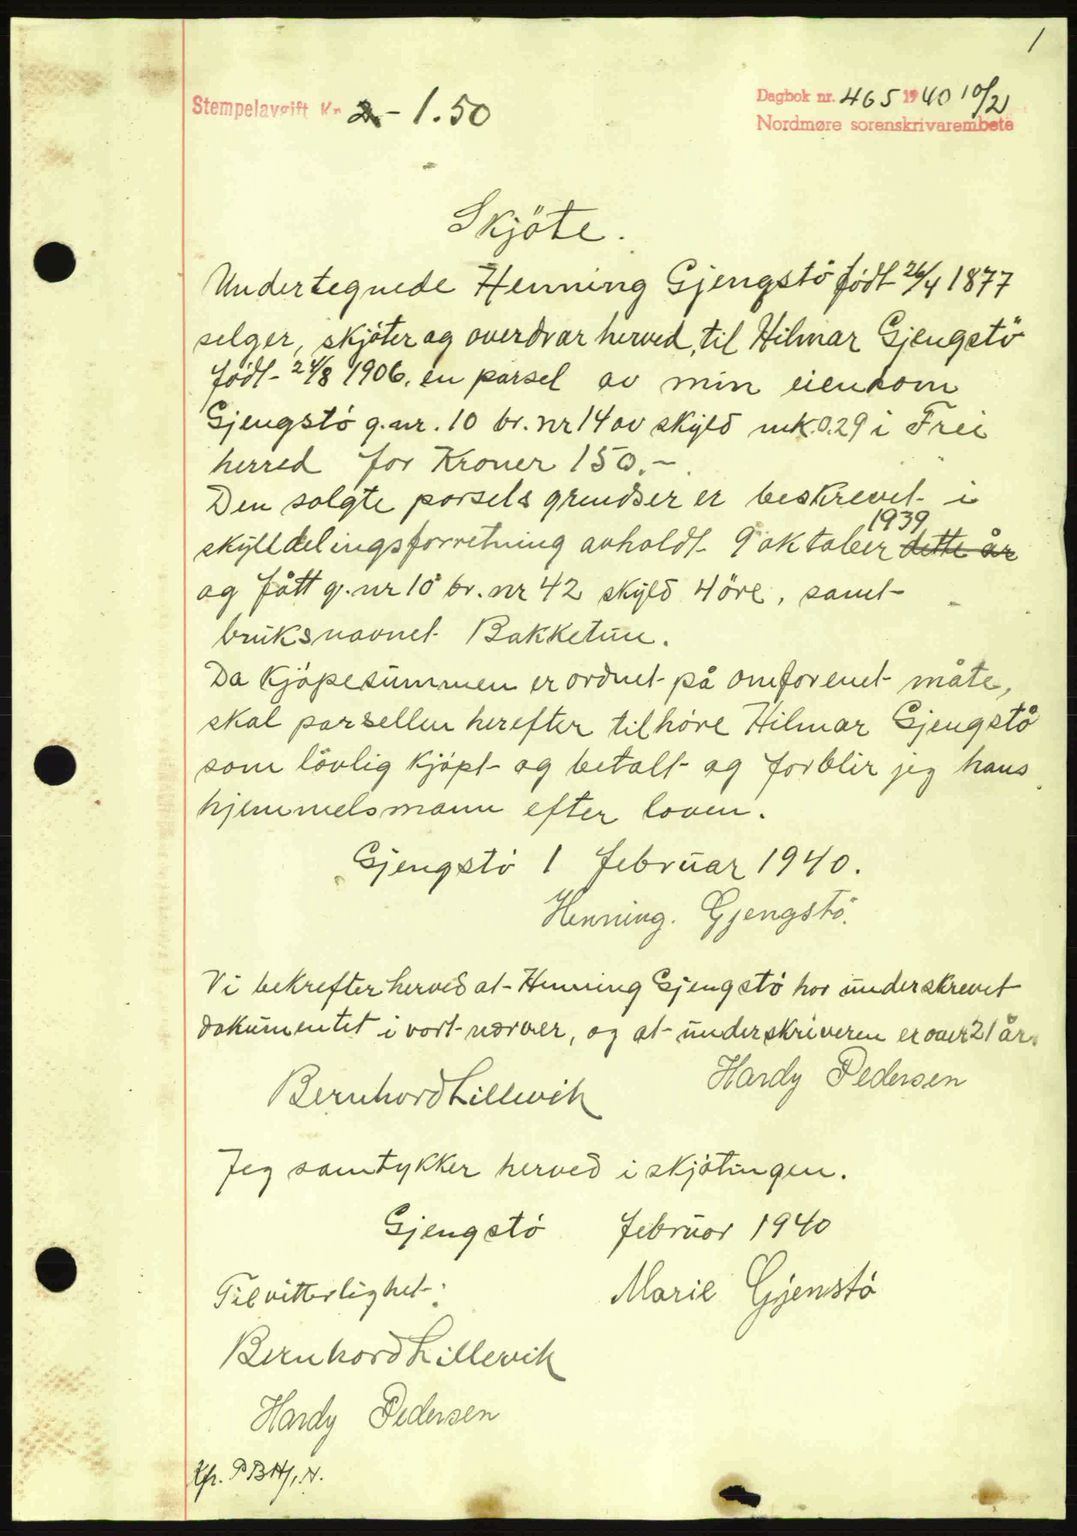 1
Stempelavgift Kr. 2 - 1.50
Dagbok nr. 465 1940 10/2
Nordmøre sorenskrivarembete
Skjöte.
Undertegnede Henning Gjengstö födt 26/4 1877
selger, skjöter og overdrar herved, til Hilmar Gjengstö
födt 24/8 1906, en parsel av min eiendom
Gjengstö g.nr. 10 br. nr 14 av skyld mk. 0.29 i Frei
herred for Kroner 150.-
Den solgte parsels grendser er beskrevet i
skylldelingsforretning avholdt 9 oktober 1939 dette år
og fått g.nr 10 br. nr 42 skyld 4 öre, samt
bruksnavnet Bakketun.
Da kjöpesummen er ordnet på omforenet måte,
skal parsellen herefter tilhöre Hilmar Gjengstö
som lövlig kjöpt og betalt og forblir jeg hans
hjemmelsmann efter loven.
Gjengstö 1 februar 1940.
Henning. Gjengstö.
Vi bekrefter herved at Henning Gjengstö har underskrevet
dokumentet i vort nærver, og at underskriveren er over 21 år.
Bernhard Lillevik
Hardy Pedersen
Jeg samtykker herved i skjötingen.
Gjengstö februar 1940
Til vitterlighet:
Marie Gjenstö
Bernhard Lillevik
Hardy Pedersen
Kfr. PBH/, N.